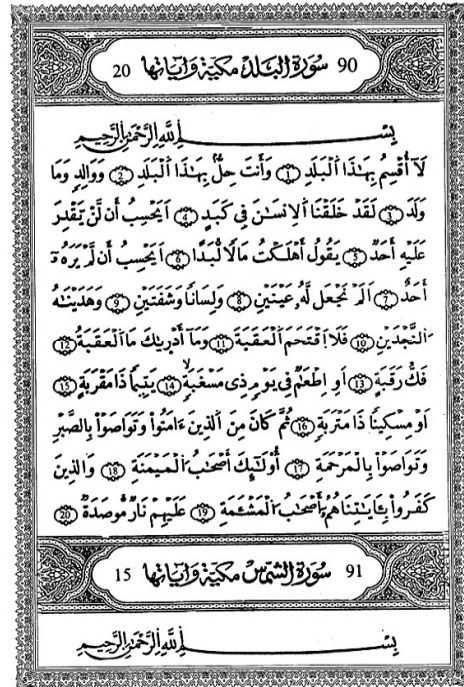 90 سُورَةُ الْبَلَدِ مَكِّيَّةٌ وَءَايَاتُهَا 20
بِسْمِ اللَّهِ الرَّحْمَٰنِ الرَّحِيمِ
لَآ أُقْسِمُ بِهَٰذَا اَلْبَلَدِ ① وَأَنتَ حِلُّۢ بِهَٰذَا اَلْبَلَدِ ② وَوَالِدٖ وَمَا
وَلَدَ ③ لَقَدْ خَلَقْنَا اَلِانسَٰنَ فِى كَبَدٍ ④ اَيَحْسِبُ أَن لَّنْ يَّقْدِرَ
عَلَيْهِ أَحَدٌ ⑤ يَقُولُ أَهْلَكْتُ مَالًا لُّبَدًا ⑥ اَيَحْسِبُ أَن لَّمْ يَرَهُۥٓ
أَحَدٌ ⑦ اَلَمْ نَجْعَل لَّهُۥ عَيْنَيْنِ ⑧ وَلِسَانًا وَشَفَتَيْنِ ⑨ وَهَدَيْنَٰهُ
اُلنَّجْدَيْنِ ⑩ فَلَا اَقْتَحَمَ اَلْعَقَبَةَ ⑪ وَمَآ أَدْرٜيٰكَ مَا اَلْعَقَبَةُ ⑫
فَكُّ رَقَبَةٍ ⑬ اَوِ اِطْعَٰمٌ فِى يَوْمٍ ذِى مَسْغَبَةٍ ⑭ يَتِيمًا ذَا مَقْرَبَةٍ ⑮
اَوْ مِسْكِينًا ذَا مَتْرَبَةٍ ⑯ ثُمَّ كَانَ مِنَ اَلذِينَ ءَامَنُواْ وَتَوَاصَوْاْ بِالصَّبْرِ
وَتَوَاصَوْاْ بِالْمَرْحَمَةِ ⑰ أُوْلَٰٓئِكَ أَصْحَٰبُ اُلْمَيْمَنَةِ ⑱ وَالذِينَ
كَفَرُواْ بِـَٔايَٰتِنَا هُمُۥٓ أَصْحَٰبُ اُلْمَشْـَٔمَةِ ⑲ عَلَيْهِمْ نَارٌ مُّوصَدَةٌ ⑳
91 سُورَةُ الشَّمْسِ مَكِّيَّةٌ وَءَايَاتُهَا 15
بِسْمِ اللَّهِ الرَّحْمَٰنِ الرَّحِيمِ